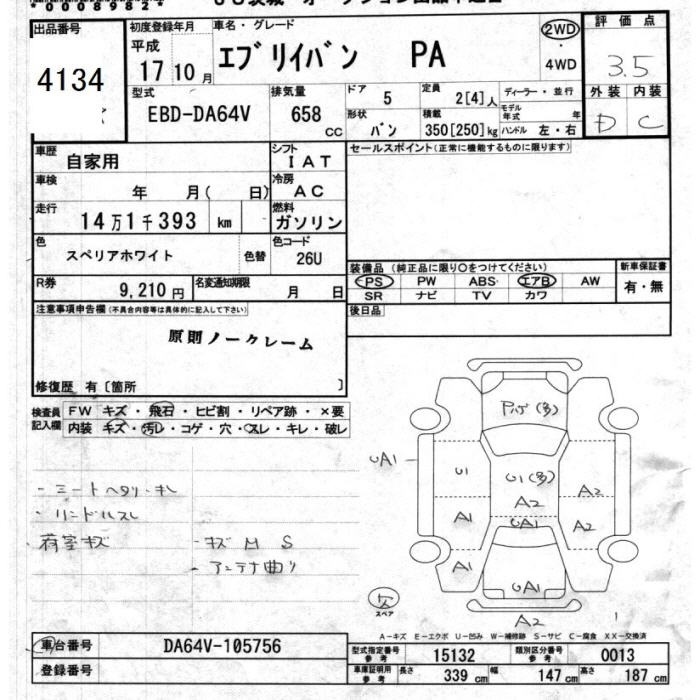 *00089824
出品番号
4134
初度登録年月
平成
17 10 月
車名・グレード
エブリイバン PA
2WD
・
4WD
評価点
3.5
外装 内装
D C
型式
EBD-DA64V
排気量
658 CC
ドア 5
形状 バン
定員 2[4]人
積載 350[250]kg
ディーラー・並行
モデル年式 年
ハンドル 左・右
車歴 自家用
シフト IAT
セールスポイント(正常に機能するものに限ります)
車検 年 月( 日)
冷房 AC
走行 14万1千393 km
燃料 ガソリン
色 スペリアホワイト 色替
色コード 26U
R券 9,210 円
名変通知期限 月 日
装備品(純正品に限り○をつけてください)
PS PW ABS エアB AW
SR ナビ TV カワ
新車保証書
有・無
後日品
注意事項申告欄(不具合内容等は具体的に記入して下さい)
原則ノークレーム
修復歴 有〔箇所 〕
検査員記入欄
FW キズ・飛石・ヒビ割・リペア跡・×要
内装 キズ・汚レ・コゲ・穴・スレ・キレ・破レ
- シートヘタリ・キレ
- リンドルスレ
荷室キズ
- キズ M S
- アンテナ曲り
UA1
U1
U1(多)
A2
A2
UA1
A1
A2
A1
UA1
A2
スペア
A-キズ E-エクボ U-凹み W-補修跡 S-サビ C-腐食 XX-交換済
車台番号 DA64V-105756
登録番号
型式指定番号 参考 15132
類別区分番号 参考 0013
車検証明 参考 長さ 339 cm 幅 147 cm 高さ 187 cm